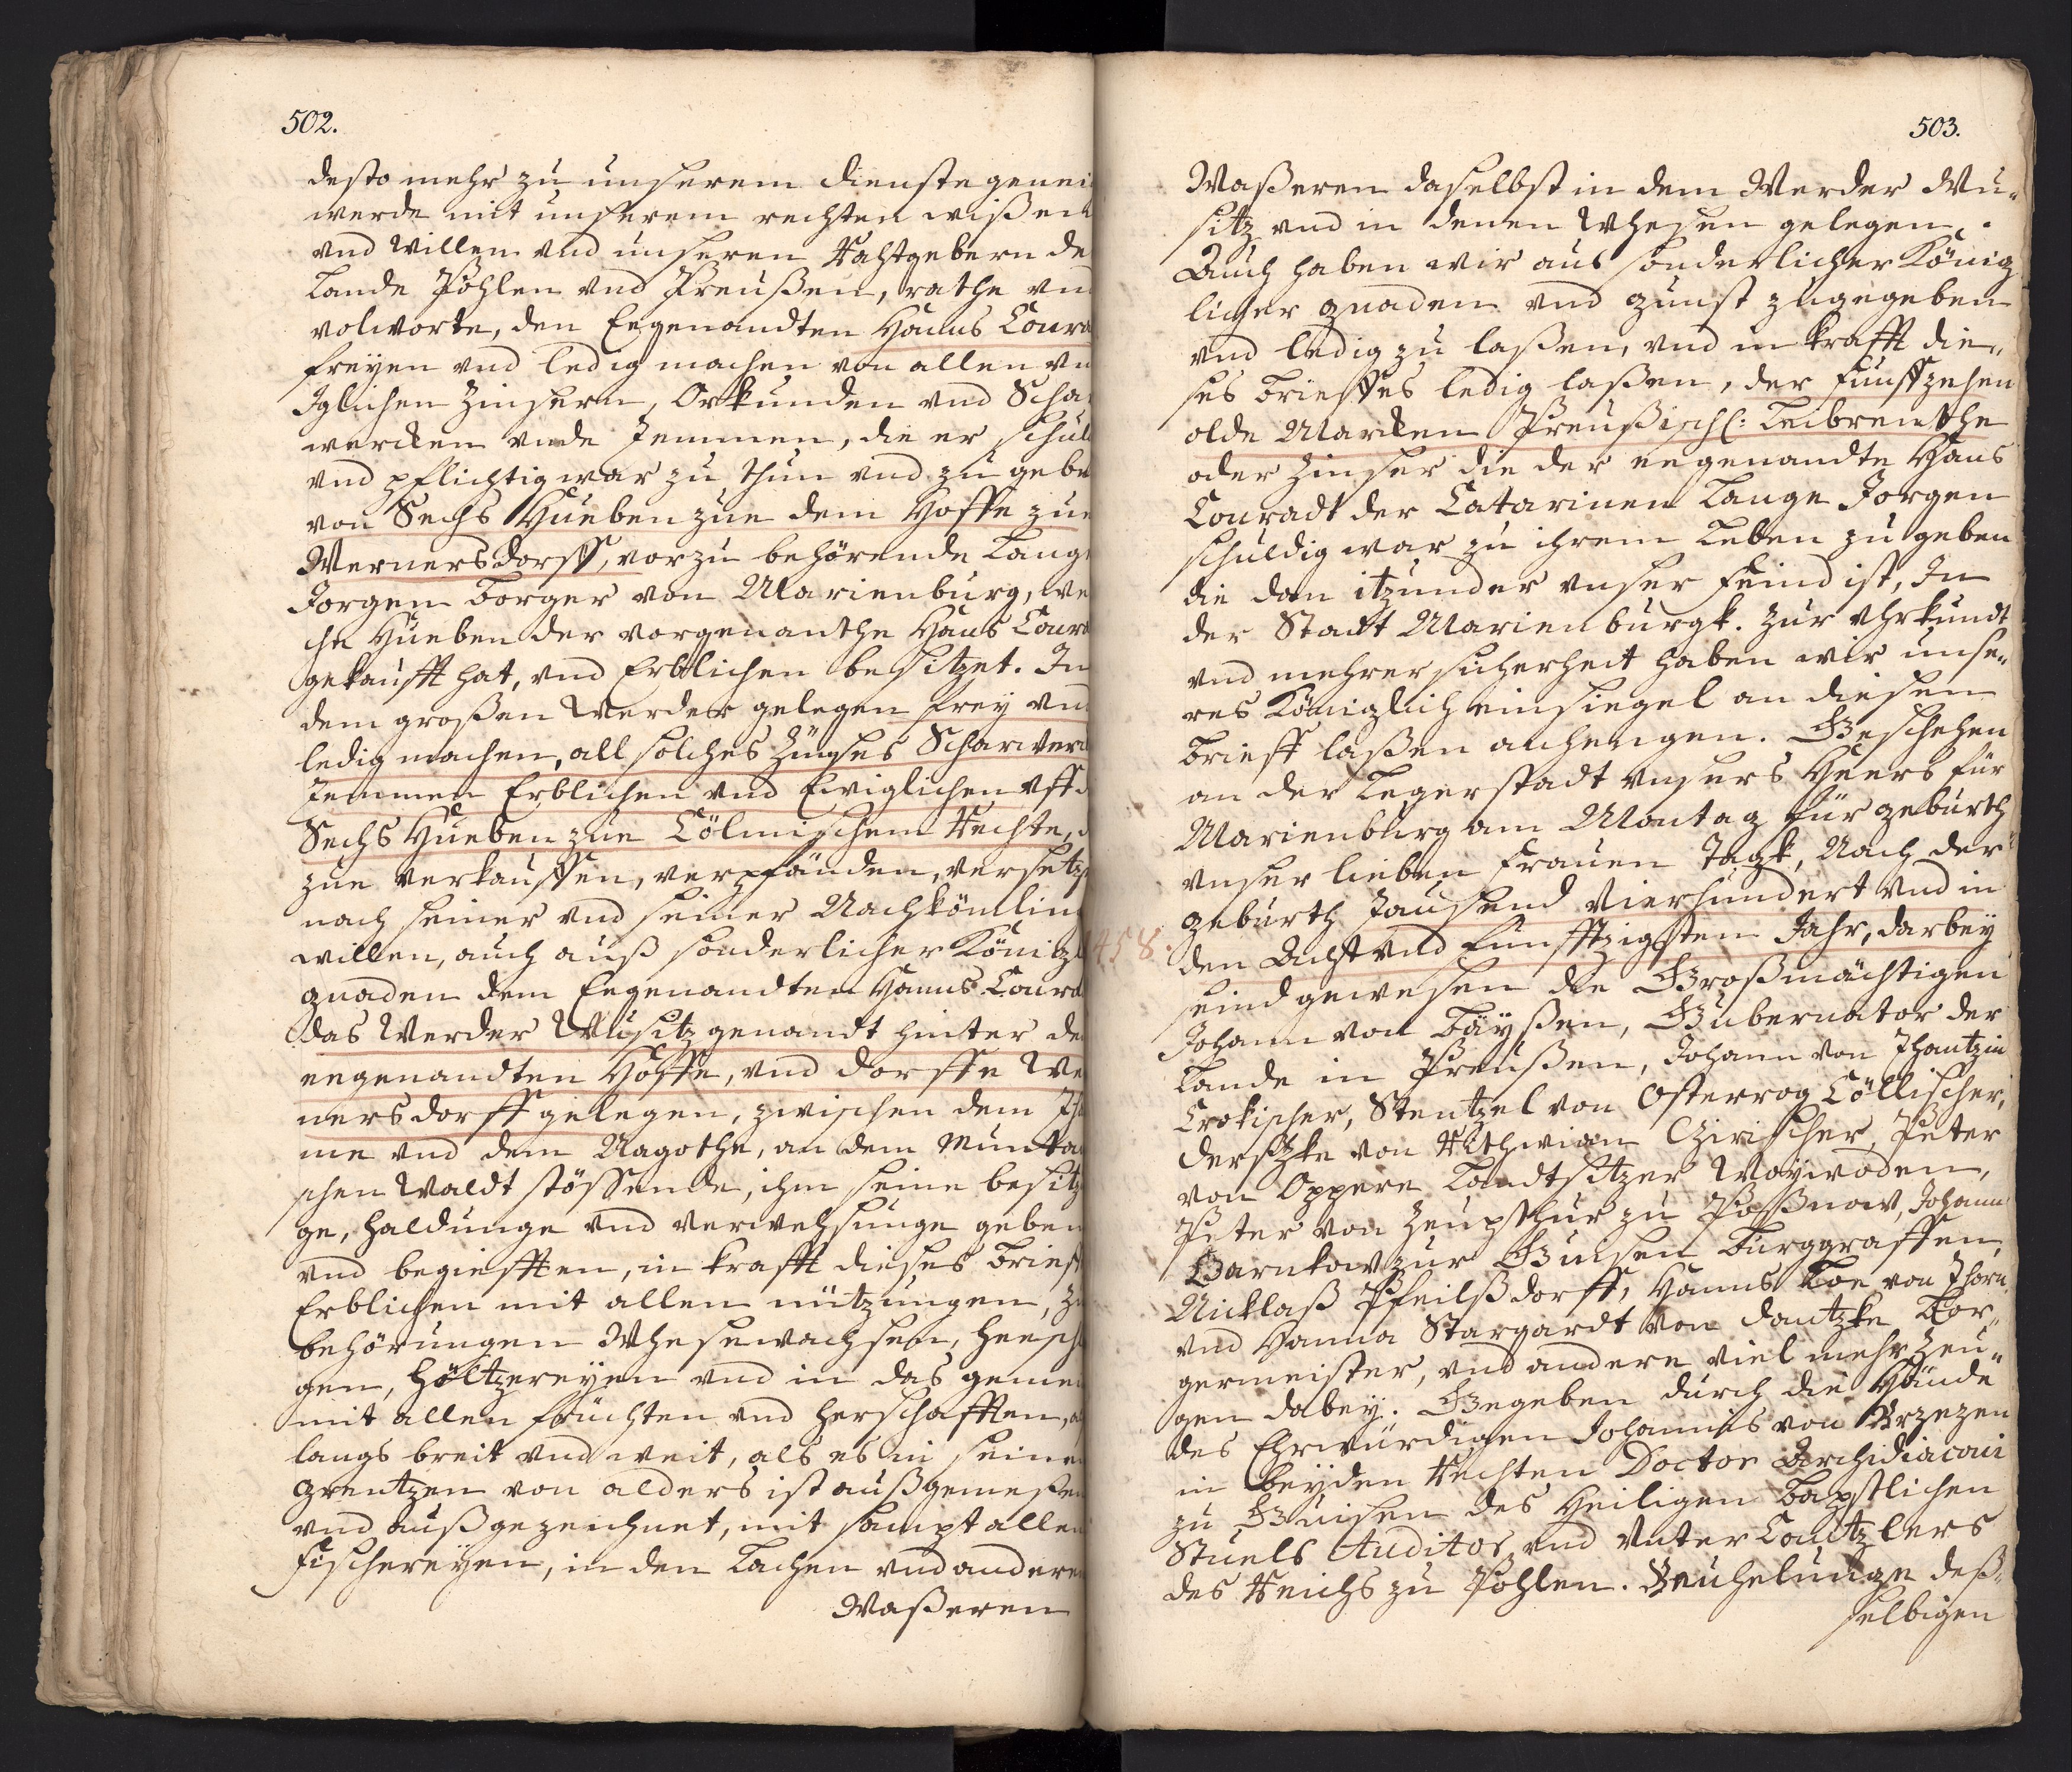 502.
desto mehr zu unserem dienste genei
werde mit unserem rechten wißen
vnd willen vnd unseren Rahtgebern de
Lande Pohlen vnd Preußen, rathe vn
volworte, den Egenandten Hanns Conra
freyen vnd ledig machen von allen vn
Iglichen Zinsern, Orkunden vnd Schar
wercken vnde Jemmen, die er schul
vnd pflichtig war zu thun vnd zu gebe
von Sechs Hueben zue dem Hoffe zue
Wernersdorff, vorzu behörende Lange
Jorgen Borger von Marienburg, we
che Hueben der vorgenanthe Hans Conra
gekaufft hat, vnd Erblichen besitzet. In
dem großen Werder gelegen frey vn
ledig machen, all solches Zinses Scharwerc
Jemmen Erblichen vnd Ewiglichen vff d
Sechs Hueben zue Cölmischem Rechte,
zue verkauffen, verpfänden, versetze
nach seiner vnd seiner Nachkömling
willen, auch auß sonderlicher Königl
gnaden dem Egenandten Hanns Conra
das Werder Wusitz genandt hinter de
egenandten Hoffe, vnd dorffe We
nersdorff gelegen, zwischen dem Th
me vnd dem Nagothe, an dem Munta
schen Waldt stössende, ihm seine besitz
ge, haldunge vnd verwehsunge geben
vnd begiefften, in krafft dieses brieff
Erblichen mit allen nützungen, Zu
behörungen Whesewachsen, heesch
gen, Höltzereyen vnd in das gemei
mit allen früchten vnd herschafften,
langs breit vnd weit, als es in seine
grentzen von alders ist außgemeßen
vnd außgezeichnet, mit sampt allen
Fischereyen, in den Lachen vnd anderen
Waßeren
503.
Waßeren daselbst in dem Werder Wu-
sitz vnd in denen Whesen gelegen.
Auch haben wir aus sonderlicher König
licher gnaden vnd gunst zugegeben
vnd ledig zu laßen, vnd in krafft die-
ses brieffes ledig laßen, der funffzehen
olde Marcken Preußisch: Leibrenthe
oder Zinser die der egenandte Hans
Conradt der Catarinen Lange Jorgen
schuldig war zu ihrem Leben zu geben
die dan itzunder vnser feind ist, In
der Stadt Marienburgk. Zur Vhrkundt
vnd mehrer sicherheit haben wir unse-
res Königlich einsiegel an diesen
brieff laßen anhengen. Geschehen
an der Legerstadt vnsers Heers für
Marienburg am Montag für geburth
vnser lieben Frauen Tagk, Nach der
geburth Tausend Vierhundert vnd in
1458. den Acht vnd Funfftzigsten Jahr, darbey
seind gewesen die Großmächtigen
Johann von Bäyßen, Gubernator der
Lande in Preußen, Johann von Thantzin
Crokischer, Stentzel von Osterrog Cöllischer,
von Oppere Landtsitzer Woywoden,
Peter von
Nicklaß Pfeilßdorff, Hanns Loe von Thorn,
vnd Hanna Stargardt von dantzke Bor-
germeister, vnd andere viel mehr Zeu-
gen dabey. Gegeben durch die Hände
des Ehrwürdigen Johannis von Brzezen
in beyden Rechten Doctor Archidiaconi
zu Gnisen des Heiligen Bapstlichen
Stuels Auditor vnd Vnter Cantzlers
des Reichs zu Pohlen. deß-
selbigen